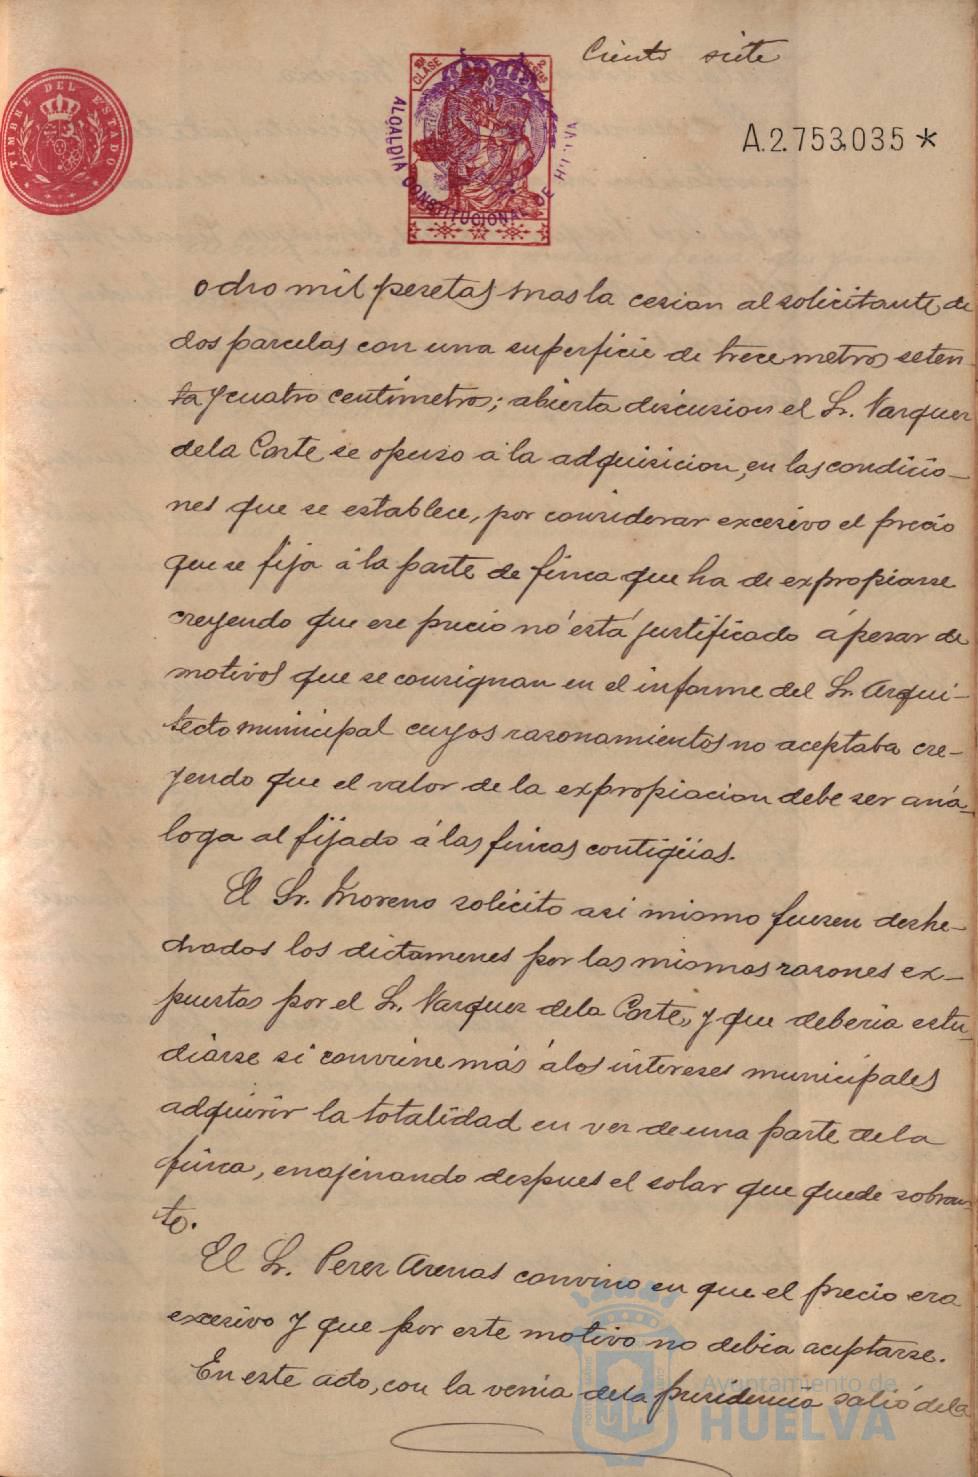 Ciento siete
TIMBRE DEL ESTADO
10ª CLASE 2 PESETAS
ALCALDIA CONSTITUCIONAL DE HUELVA
A.2.753,035 *
ocho mil pesetas mas la cesion al solicitante de
dos parcelas con una superficie de trece metros seten
ta y cuatro centimetros; abierta discusion el Sr. Vazquez
de la Corte se opuso á la adquisicion, en las condicio-
nes que se establece, por considerar excesivo el precio
que se fija á la parte de finca que ha de expropiarse
creyendo que ese precio no está justificado á pesar de
motivos que se consignan en el informe del Sr. Arqui-
tecto municipal cuyos razonamientos no aceptaba cre-
yendo que el valor de la expropiacion debe ser aná-
loga al fijado á las fincas contigüas.
El Sr. Moreno solicito asi mismo fuesen deshe-
chados los dictamenes por las mismas razones ex-
puestas por el Sr. Vazquez de la Corte, y que deberia estu-
diarse si conviene más á los intereses municipales
adquirir la totalidad en vez de una parte de la
finca, enajenando despues el solar que quede sobran-
te.
El Sr. Perez Arenas convino en que el precio era
excesivo y que por este motivo no debia aceptarse.
En este acto, con la venia de la presidencia salió de la
Ayuntamiento de
HUELVA